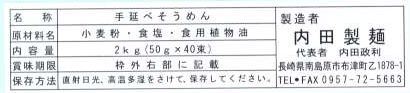 名 称 手延べそうめん
原材料名 小麦粉・食塩・食用植物油
内 容 量 2kg(50g×40束)
賞味期限 枠外右部に記載
保存方法 直射日光、高温多湿をさけて、保存してください。
製造者
内田製麺
代表者 内田政利
長崎県南島原市布津町乙1878-1
TEL•FAX 0957-72-5663